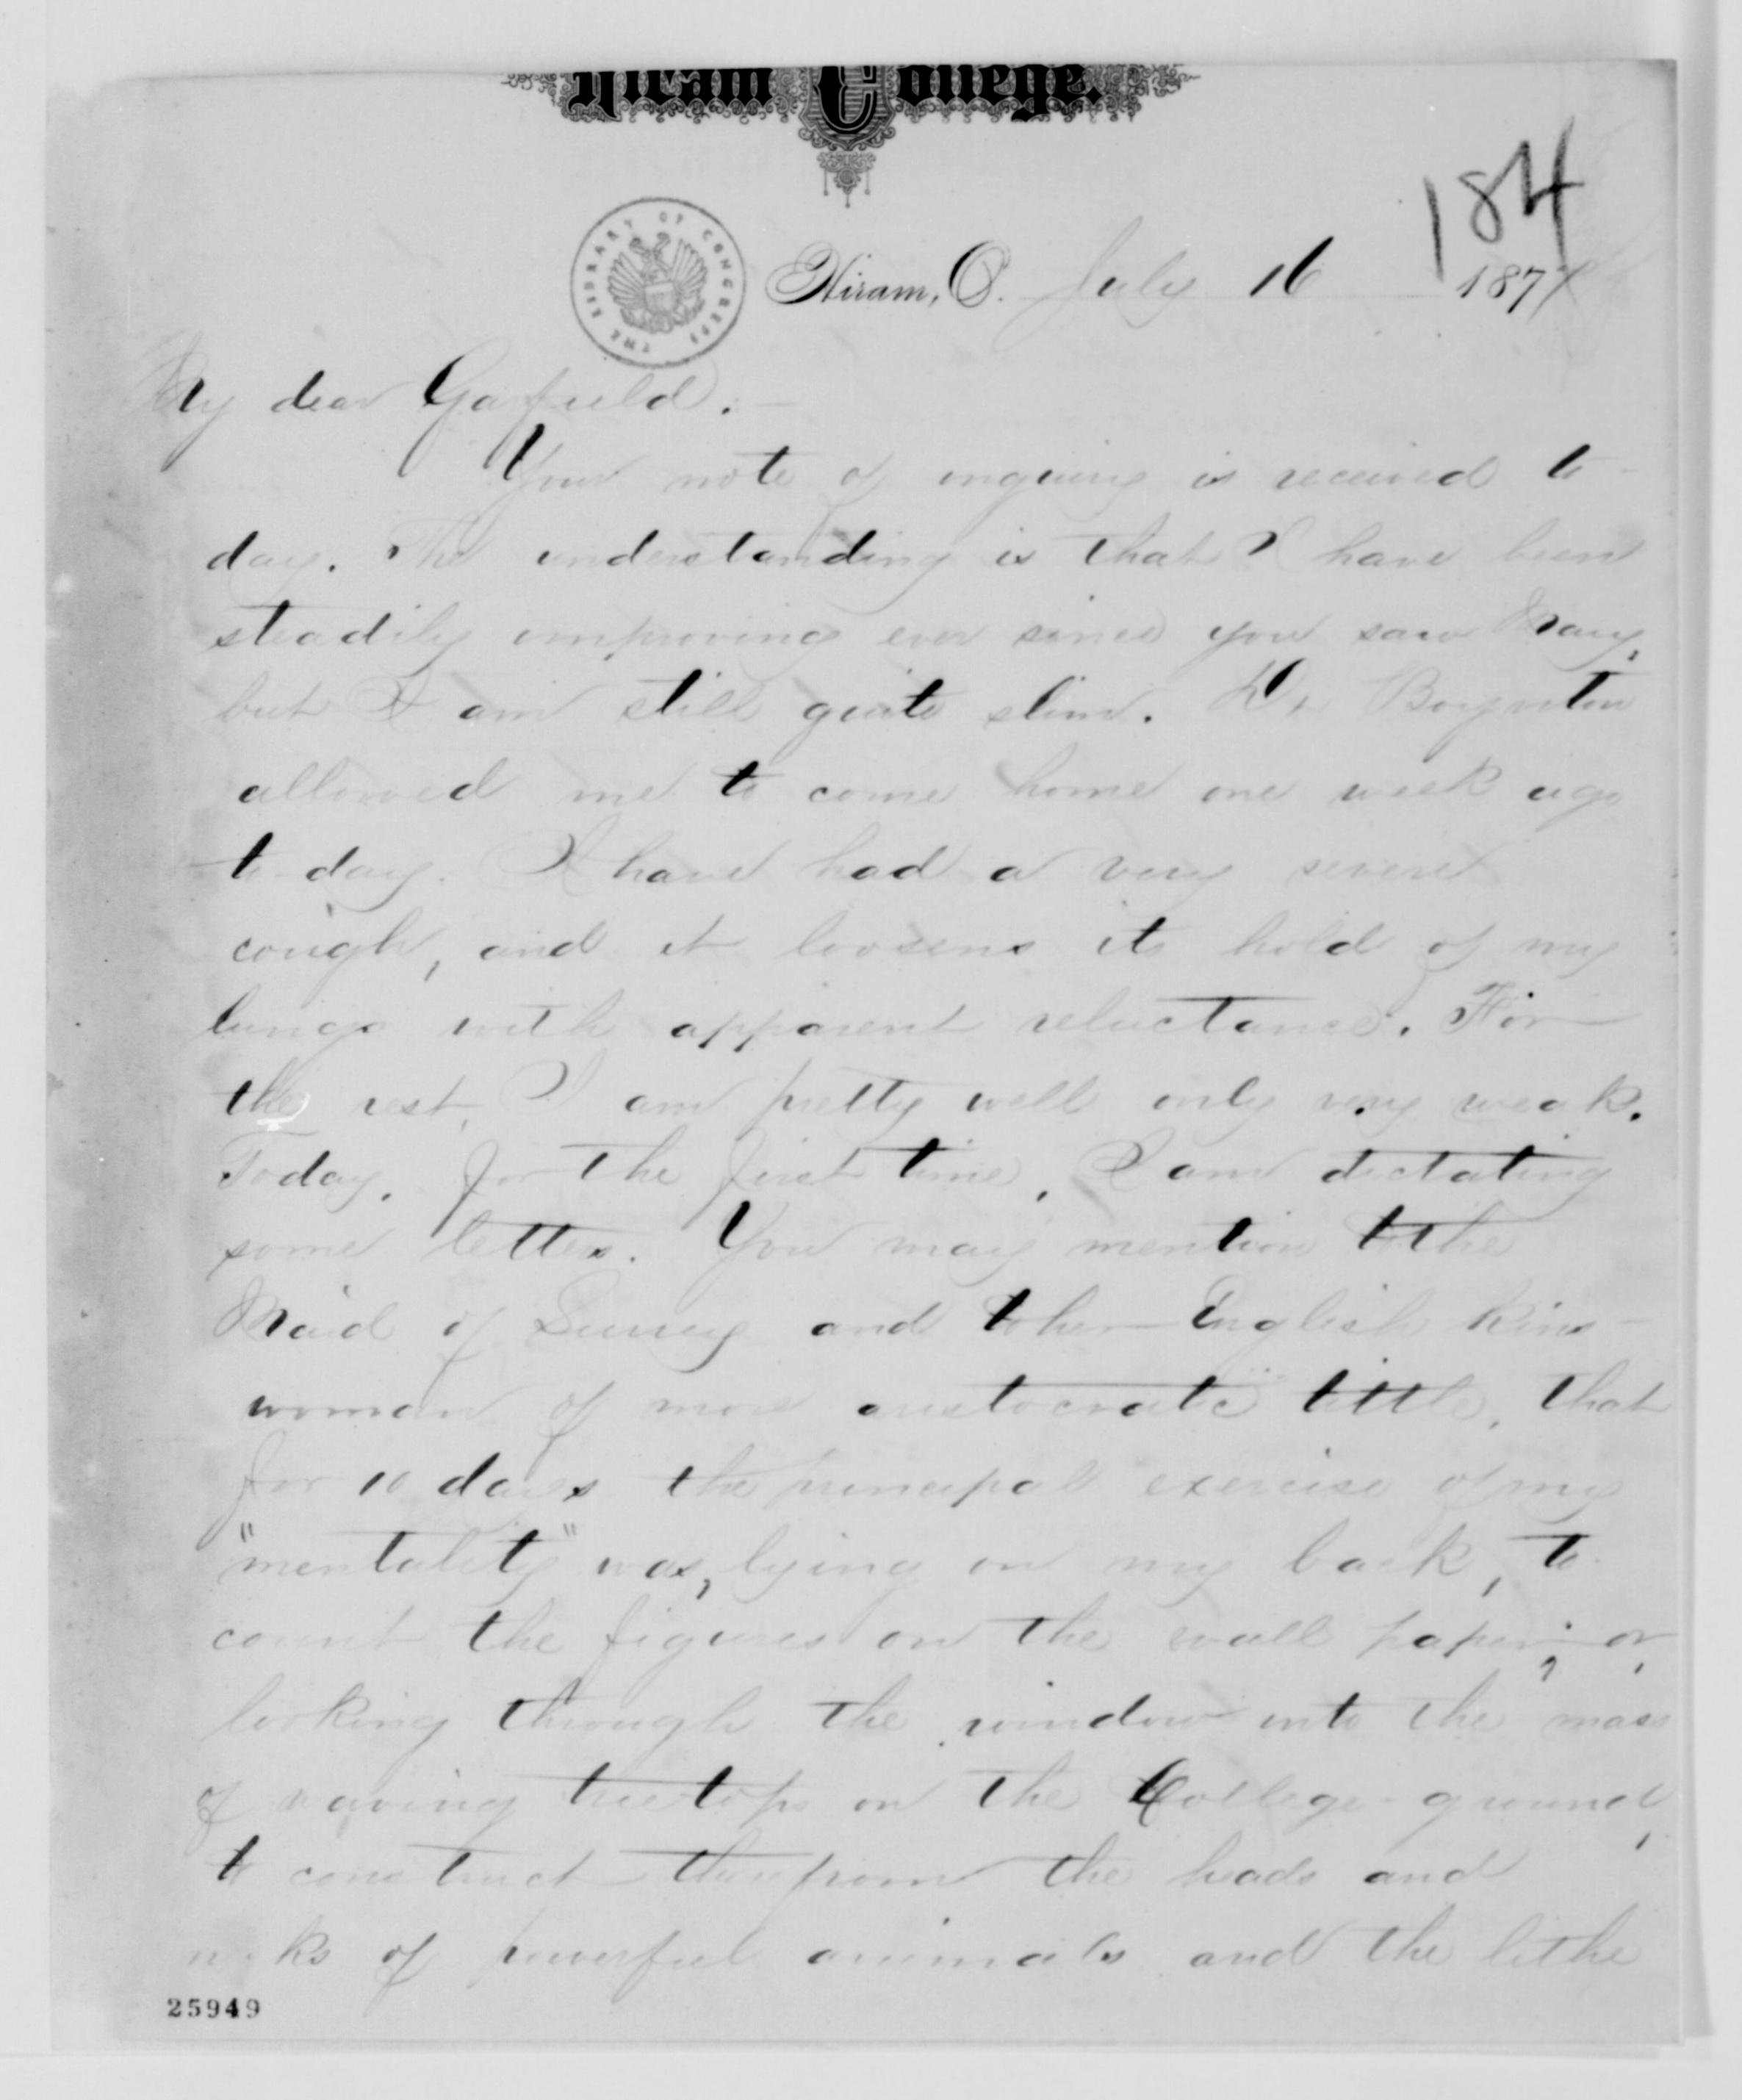 Hiram College.
184
THE LIBRARY OF CONGRESS
Hiram, O. July 16 1877
My dear Garfield. —
Your note of inquiry is received to-
day. The understanding is that I have been
steadily improving ever since you saw Mary,
but I am still quite slim. Dr Boynton
allowed me to come home one week ago
to-day. I have had a very severe
cough, and it loosens its hold of my
lungs with apparent reluctance. For
the rest, I am pretty well only very weak.
Today, for the first time, I am dictating
some letters. You may mention to the
Maid of Surrey and to her English kins-
woman of more aristocratic tittle, that
for 10 days the principal exercise of my
"mentality" was, lying on my back, to
count the figures on the wall paper; or,
looking through the window into the mass
of waving treetops on the College-ground,
to construct therefrom the heads and
necks of powerful animals and the lithe
25949